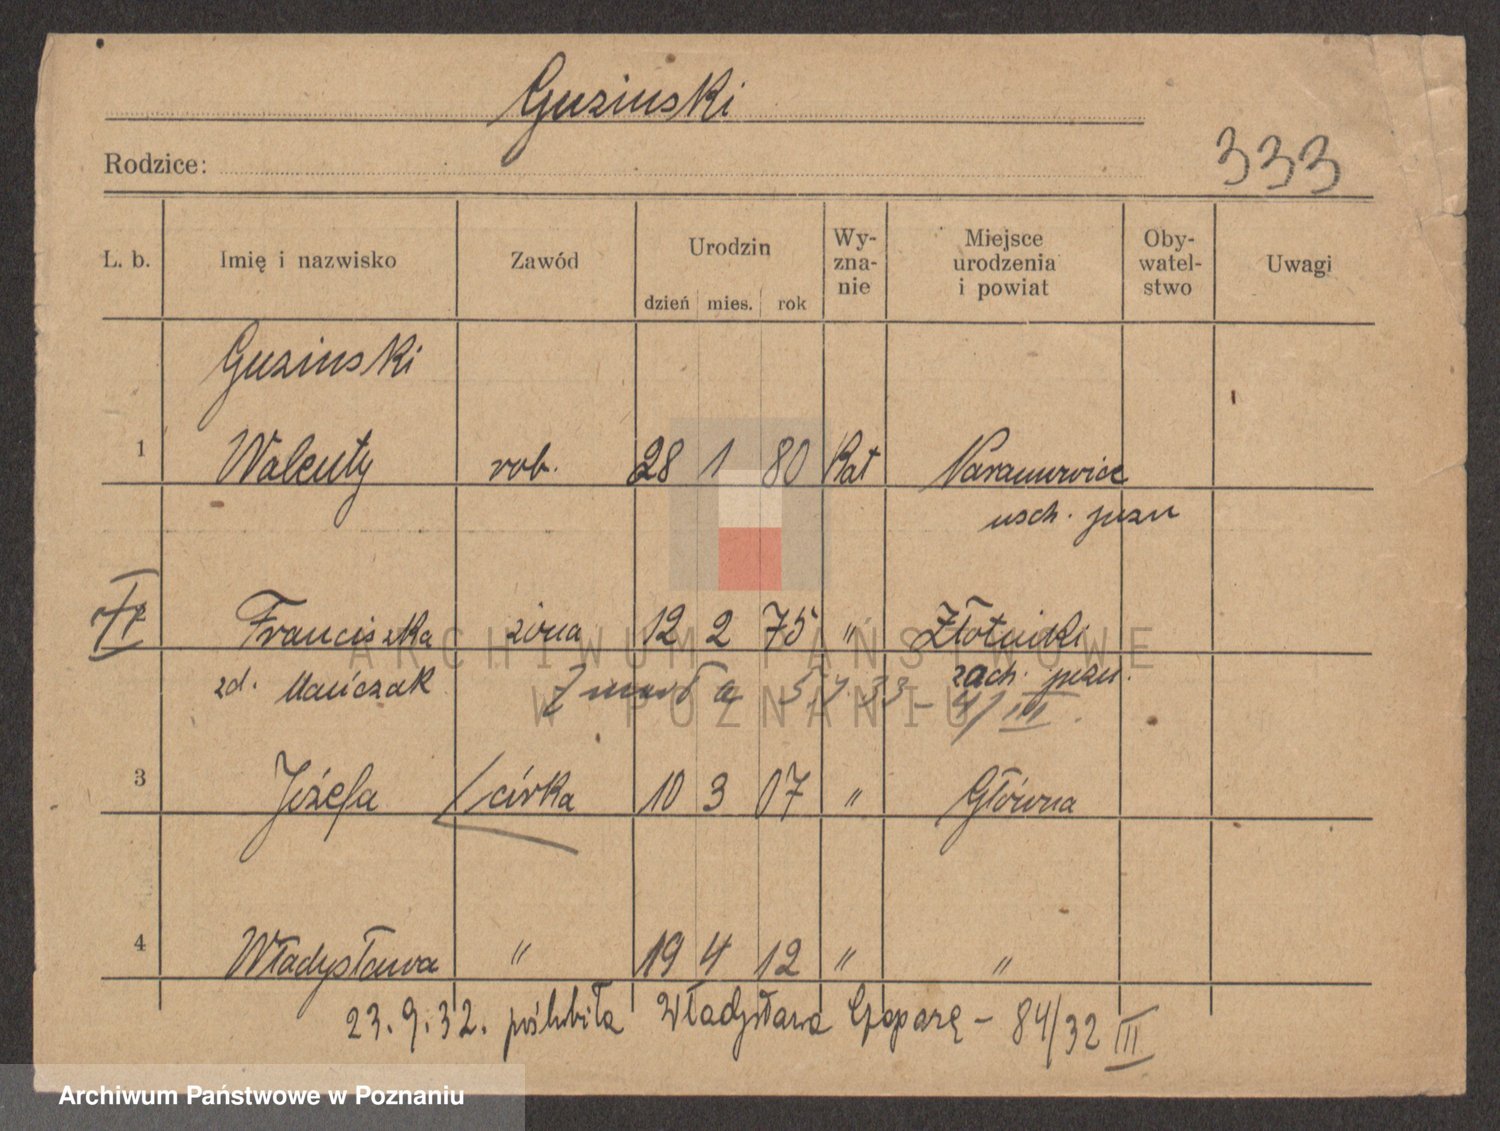 Guzinski
Rodzice:
333
L. b. Imię i nazwisko Zawód Urodzin dzień mies. rok Wy-zna-nie Miejsce urodzenia i powiat Oby-watel-stwo Uwagi
Guzinski
1 Walenty rob. 28 1 80 Kat
usch. pozn
Franciszka żona 12 2 75 " Złotniki
zd. Mańczak zach. pozn.
Zmarła 33 – 4/III.
3 Józefa / córka 10 3 07 " Główna
4 Władysława " 19 4 12 " "
23.9.32. poślubiła Władysława – 84/32 III
ARCHIWUM PAŃSTWOWE
W POZNANIU
Archiwum Państwowe w Poznaniu